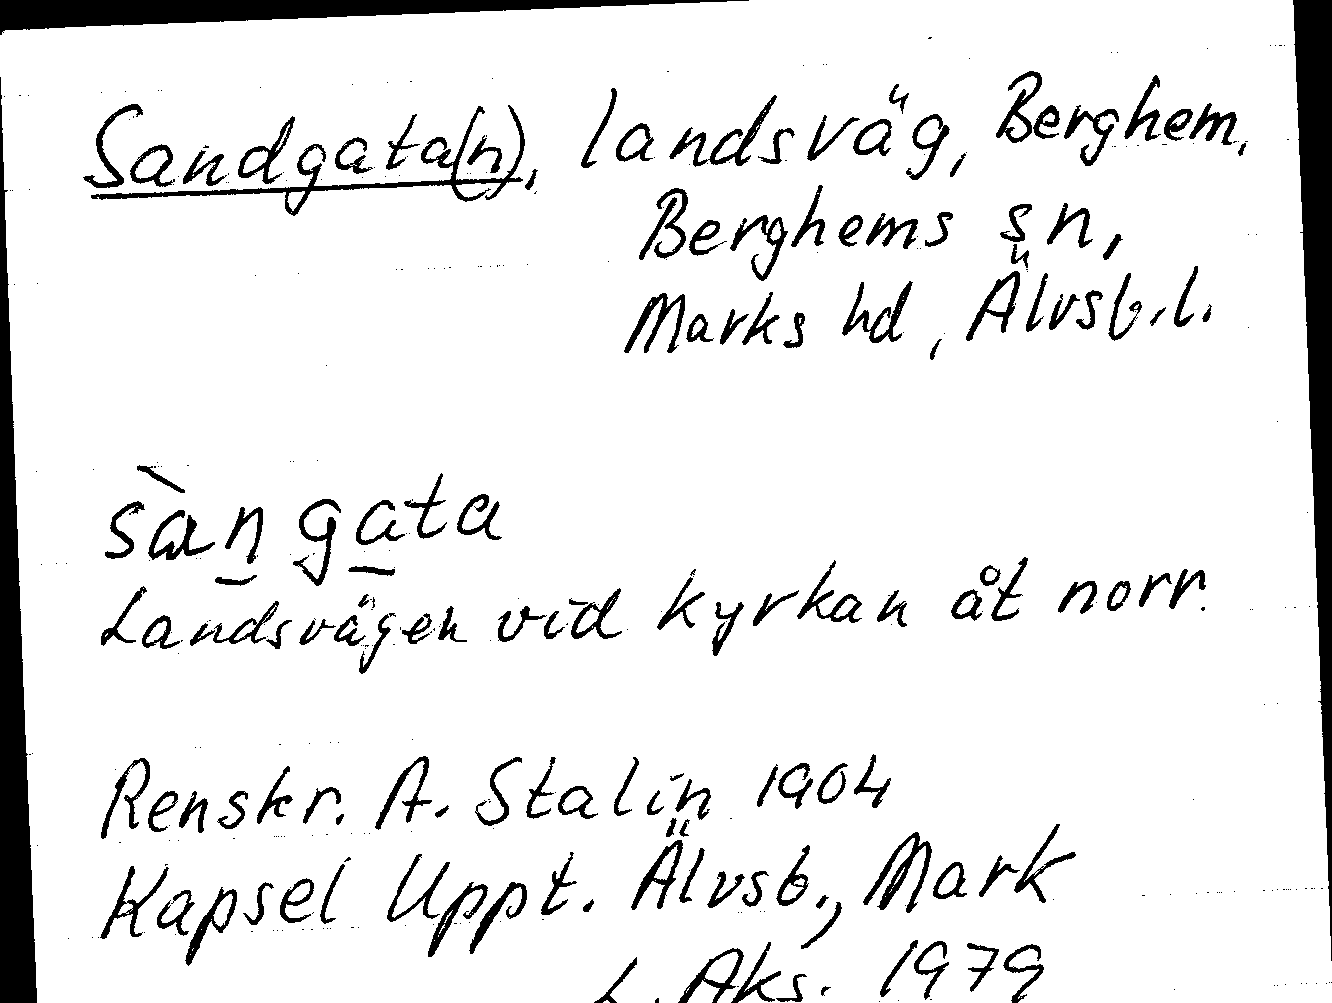 Sandgata(n), landsväg, Berghem,
Berghems sn,
Marks hd, Älvsb.l.
sàn̲ ga̲ta
Landsvägen vid kyrkan åt norr.
Renskr. A. Stalin 1904
Kapsel Uppt. Älvsb., Mark
L. Aks. 1979